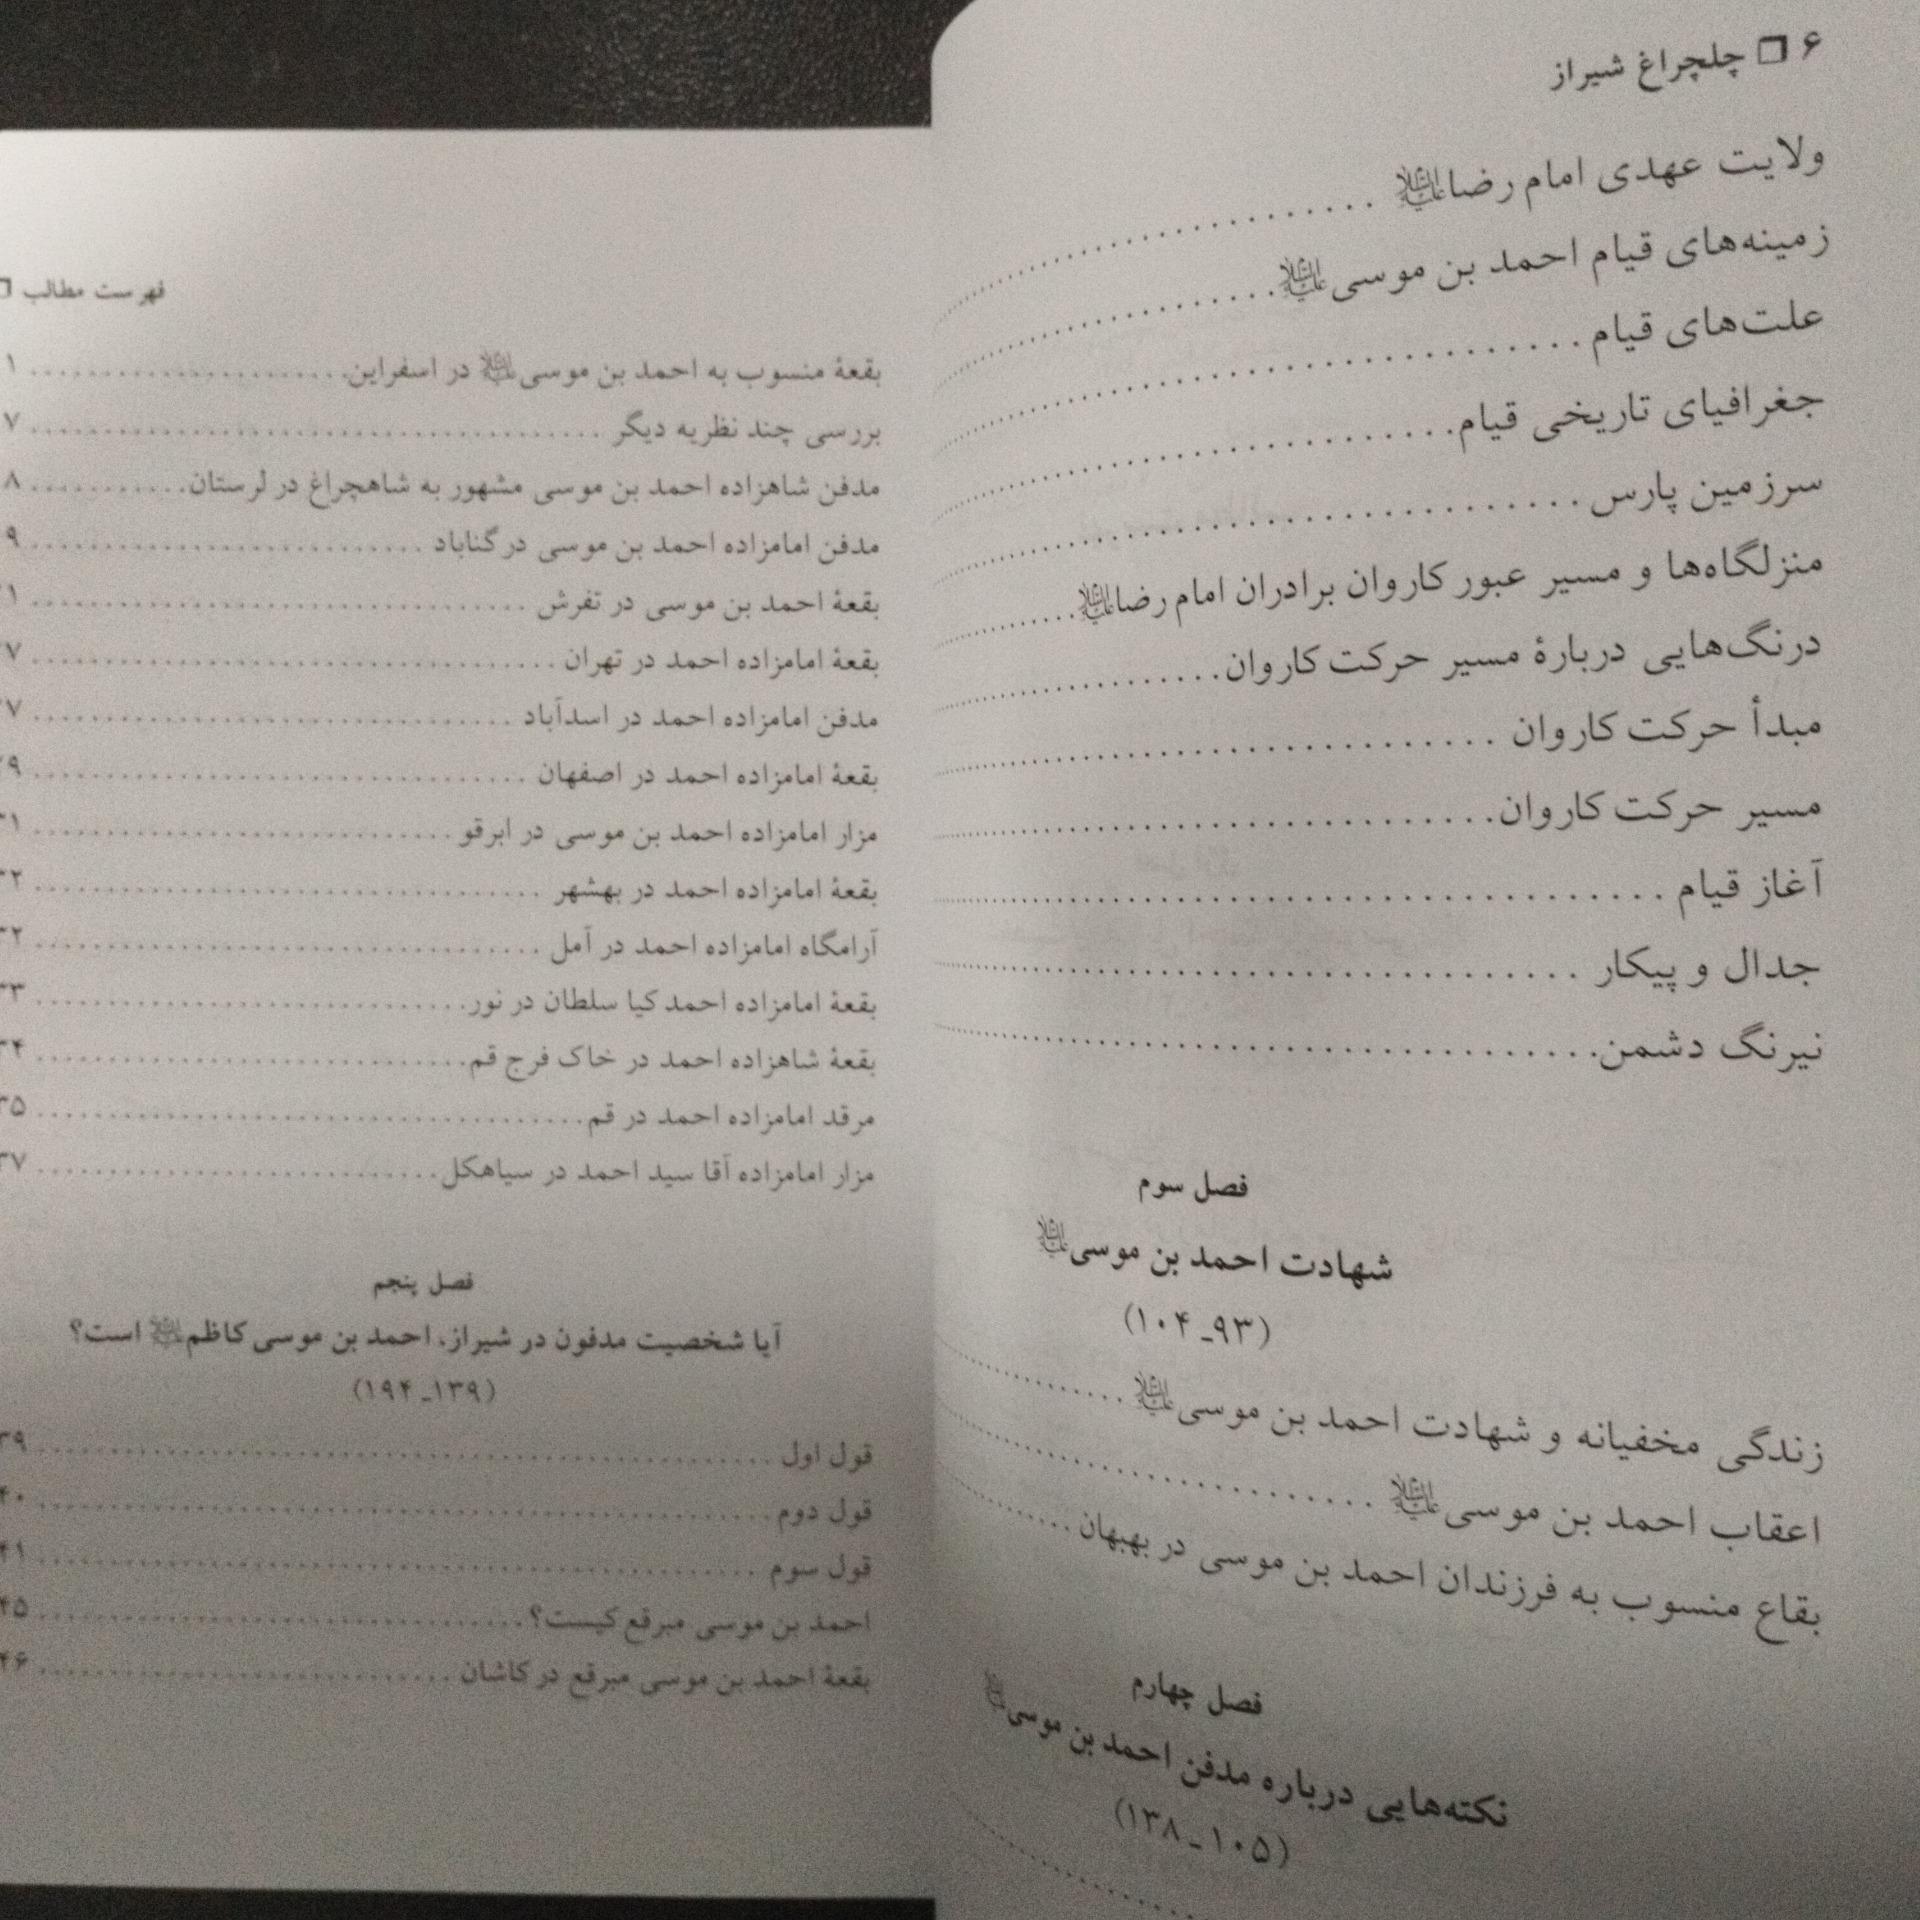 ۶ ❒ چلچراغ شیراز
ولایت عهدی امام رضا علیه‌السلام
زمینه‌های قیام احمد بن موسی علیه‌السلام
علت‌های قیام
جغرافیای تاریخی قیام
سرزمین پارس
منزلگاه‌ها و مسیر عبور کاروان برادران امام رضا علیه‌السلام
درنگ‌هایی دربارهٔ مسیر حرکت کاروان
مبدأ حرکت کاروان
مسیر حرکت کاروان
آغاز قیام
جدال و پیکار
نیرنگ دشمن
فصل سوم
شهادت احمد بن موسی علیه‌السلام
(۹۳ـ ۱۰۴)
زندگی مخفیانه و شهادت احمد بن موسی علیه‌السلام
اعقاب احمد بن موسی علیه‌السلام
بقاع منسوب به فرزندان احمد بن موسی در بهبهان
فصل چهارم
نکته‌هایی درباره مدفن احمد بن موسی علیه‌السلام
(۱۰۵ ـ ۱۳۸)
فهرست مطالب ❒
بقعهٔ منسوب به احمد بن موسی علیه‌السلام در اسفراین
بررسی چند نظریه دیگر
مدفن شاهزاده احمد بن موسی مشهور به شاهچراغ در لرستان
مدفن امامزاده احمد بن موسی در گناباد
بقعهٔ احمد بن موسی در تفرش
بقعهٔ امامزاده احمد در تهران
مدفن امامزاده احمد در اسدآباد
بقعهٔ امامزاده احمد در اصفهان
مزار امامزاده احمد بن موسی در ابرقو
بقعهٔ امامزاده احمد در بهشهر
آرامگاه امامزاده احمد در آمل
بقعهٔ امامزاده احمد کیا سلطان در نور
بقعهٔ شاهزاده احمد در خاک فرج قم
مرقد امامزاده احمد در قم
مزار امامزاده آقا سید احمد در سیاهکل
فصل پنجم
آیا شخصیت مدفون در شیراز، احمد بن موسی کاظم علیه‌السلام است؟
(۱۳۹ـ ۱۹۴)
قول اول
قول دوم
قول سوم
احمد بن موسی مبرقع کیست؟
بقعهٔ احمد بن موسی مبرقع در کاشان